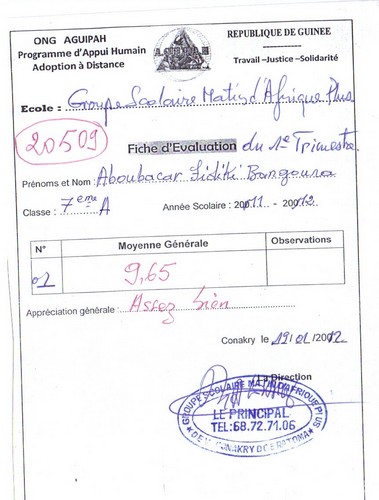 ONG AGUIPAH
Programme d'Appui Humain
Adoption à Distance
AGUIPAH
REPUBLIQUE DE GUINEE
Travail –Justice –Solidarité
Ecole : Groupe Scolaire Matin d'Afrique Plus
20509
Fiche d'Evaluation du 1er Trimestre
Prénoms et Nom : Aboubacar Sidiki Bangoura
Classe : 7ème A
Année Scolaire : 20011 - 20012
N° Moyenne Générale Observations
01 9,65
Appréciation générale : Assez bien
Conakry le 19/01/20012
La Direction
GROUPE SCOLAIRE MATIN D'AFRIQUE PLUS
LE PRINCIPAL
TEL:68.72.71.06
CONAKRY